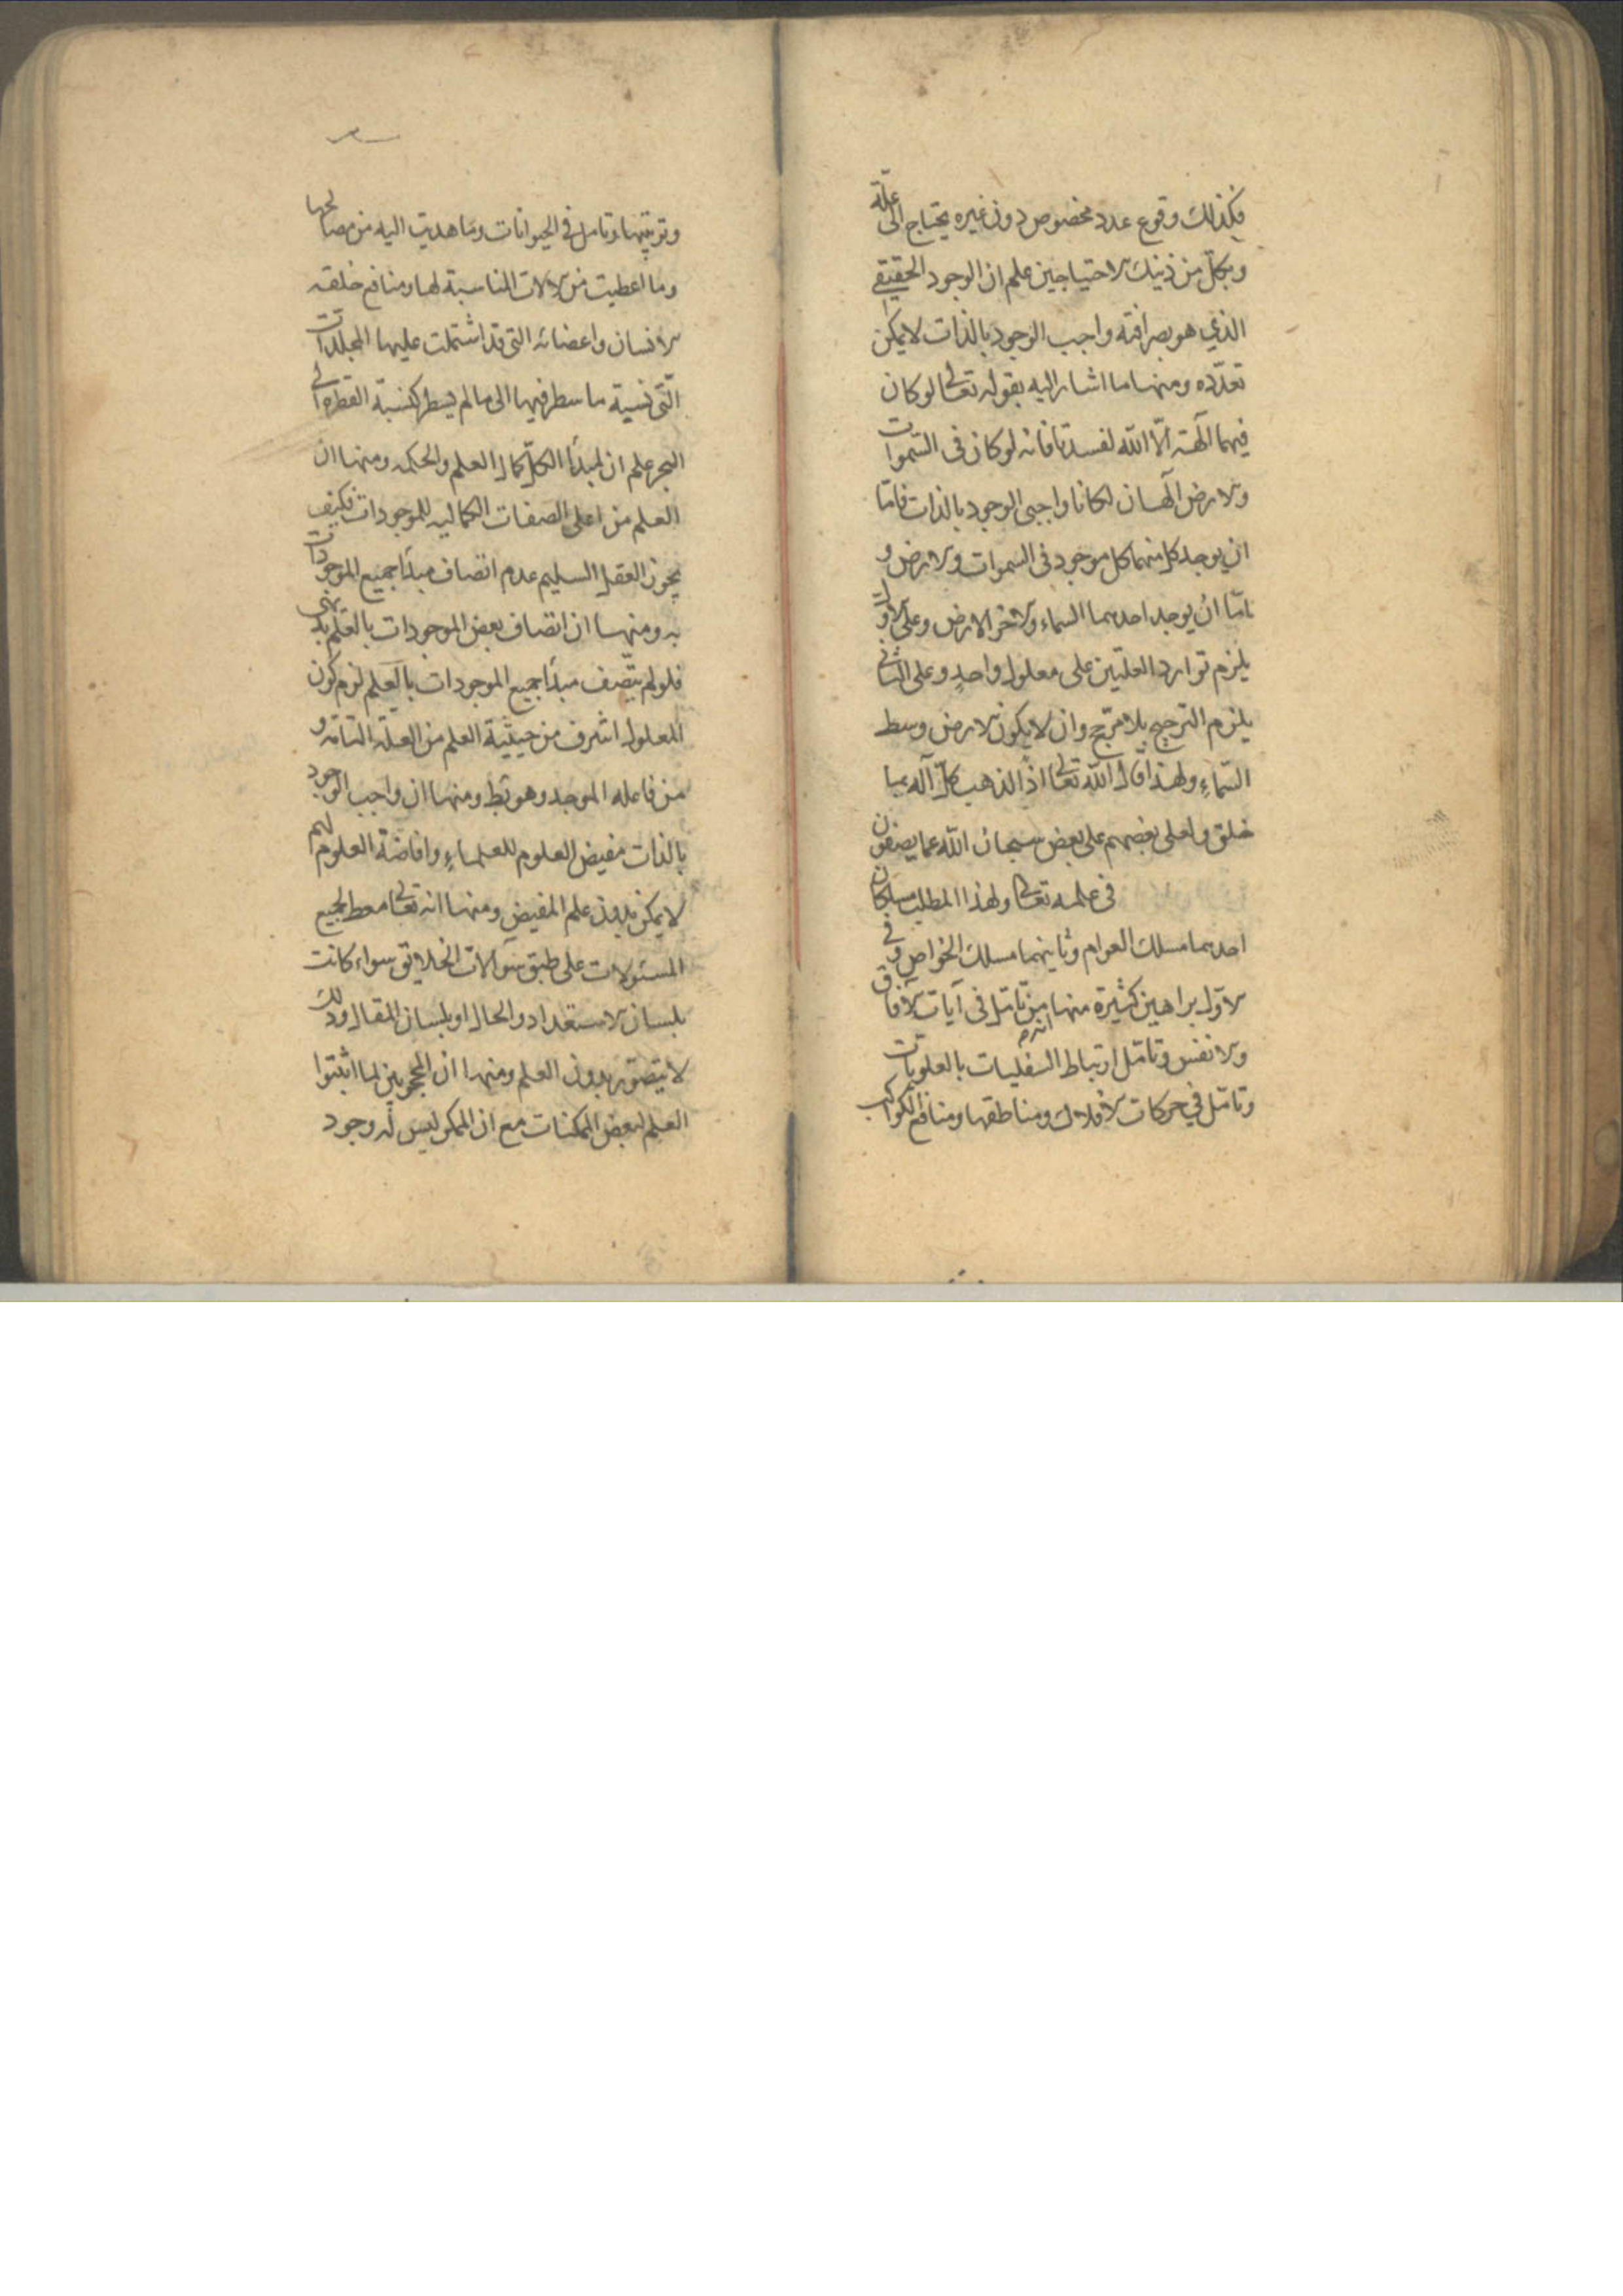 فكذلك وقوع عدد مخصوص دون غيره يحتاج الى علة
وبكل من ذينك الاحتياجين علم ان الوجود الحقيقي
الذي هو بصرافته واجب الوجود بالذات لا يمكن
تعدّده ومنها ما اشار اليه بقوله تعالى لو كان
فيهما آلهة الّا الله لفسدتا فانه لو كان فى السّموات
والارض آلهان لكانا واجبى الوجود بالذات فامّا
ان يوجد كل منهما كل موجود فى السموات والارض و
امّا ان يوجد احدهما السماء والاخر الارض وعلى الاول
يلزم توارد العلتين على معلول واحدٍ وعلى الثانى
يلزم الترجيح بلا مرجّح وان لا يكون الارض وسط
السّماءِ ولهذا قال الله تعالى اذاً لذهب كلّ آله بما
خلق ولعلى بعضهم على بعض سبحان الله عما يصفون
فى علمه تعالى ولهذا المطلب مسلكان
احدهما مسلك العوام وثانيهما مسلك الخواص وفى
الاوّل براهين كثيرة منها من تامّل فى آيات الآفاق
والانفس وتامّل ارتباط السفليات بالعلويات
وتامّل في حركات الافلاك ومناطقها ومنافع الكواكب
وتربيتها وتامل فى الحيوانات وما هديت اليه من مصالحها
وما اعطيت من الآلات المناسبة لها ومنافع خلقه
الانسان واعضائه التى قد اشتملت عليها المجلدات
الّتى نسبة ما سطر فيها الى ما لم يسطر كنسبة القطرة الى
البحر علم ان لمبدأ الكلّ كمال العلم والحكمه ومنها ان
العلم من اعلى الصفات الكماليه للموجودات فكيف
يجوز العقل السليم عدم اتصاف مبدأ جميع الموجودات
به ومنها ان اتصاف بعض الموجودات بالعلم بديهى
فلو لم يتّصف مبدأ جميع الموجودات بالعلم لزم كون
المعلول اشرف من حيثية العلم من العلّة التامّة و
من فاعله الموجد وهو بط ومنها ان واجب الوجود
بالذات مفيض العلوم للعلماءِ وافاضة العلوم لهم
لا يمكن بدون علم المفيض ومنها انه تعالى معط لجميع
المسئولات على طبق سؤالات الخلائق سواء كانت
بلسان الاستعداد والحال او بلسان المقال وذلك
لا يتصوّر بدون العلم ومنها ان المحجوبين لما اثبتوا
العلم لبعض الممكنات مع ان الممكن ليس له وجود